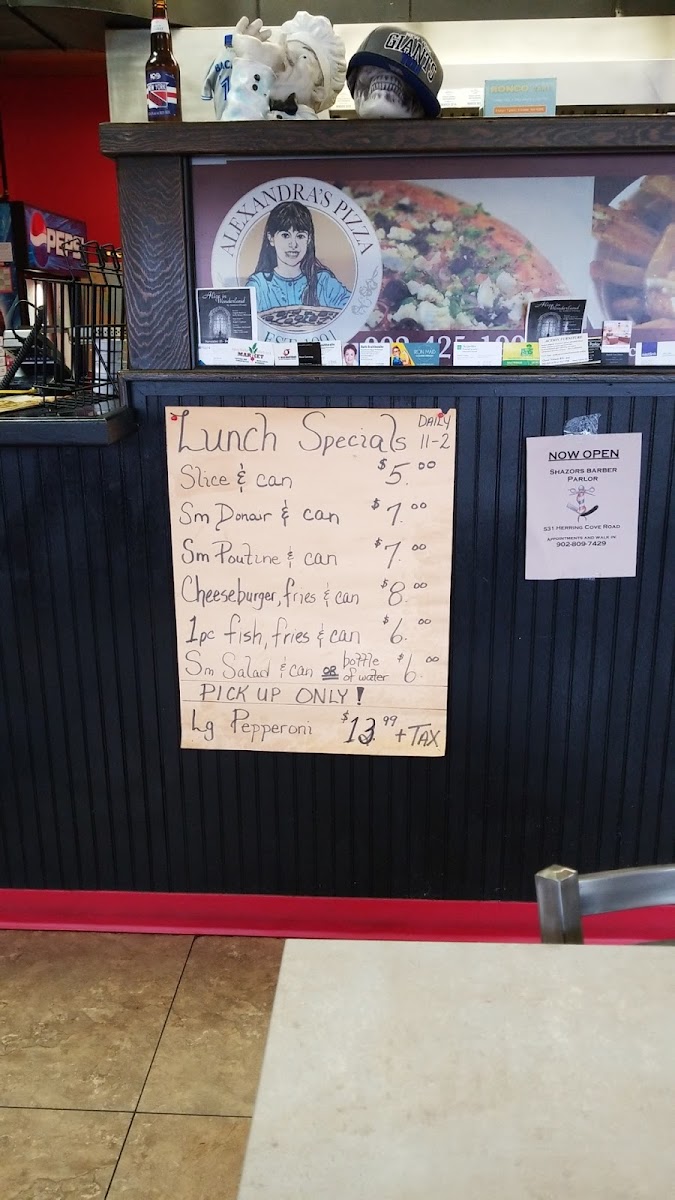 GIANTS
NEW YORK
RONCO
PEPSI
ALEXANDRA'S PIZZA
EST. 1991
Alice in
Wonderland
MARKET
Lunch Specials DAILY 11-2
Slice & can $5.00
Sm Donair & can $7.00
Sm Poutine & can $7.00
Cheeseburger, fries & can $8.00
1pc fish, fries & can $6.00
Sm Salad & can OR bottle of water $6.00
PICK UP ONLY!
Lg Pepperoni $13.99 + TAX
NOW OPEN
SHAZORS BARBER
PARLOR
531 HERRING COVE ROAD
APPOINTMENTS AND WALK IN
902-809-7429